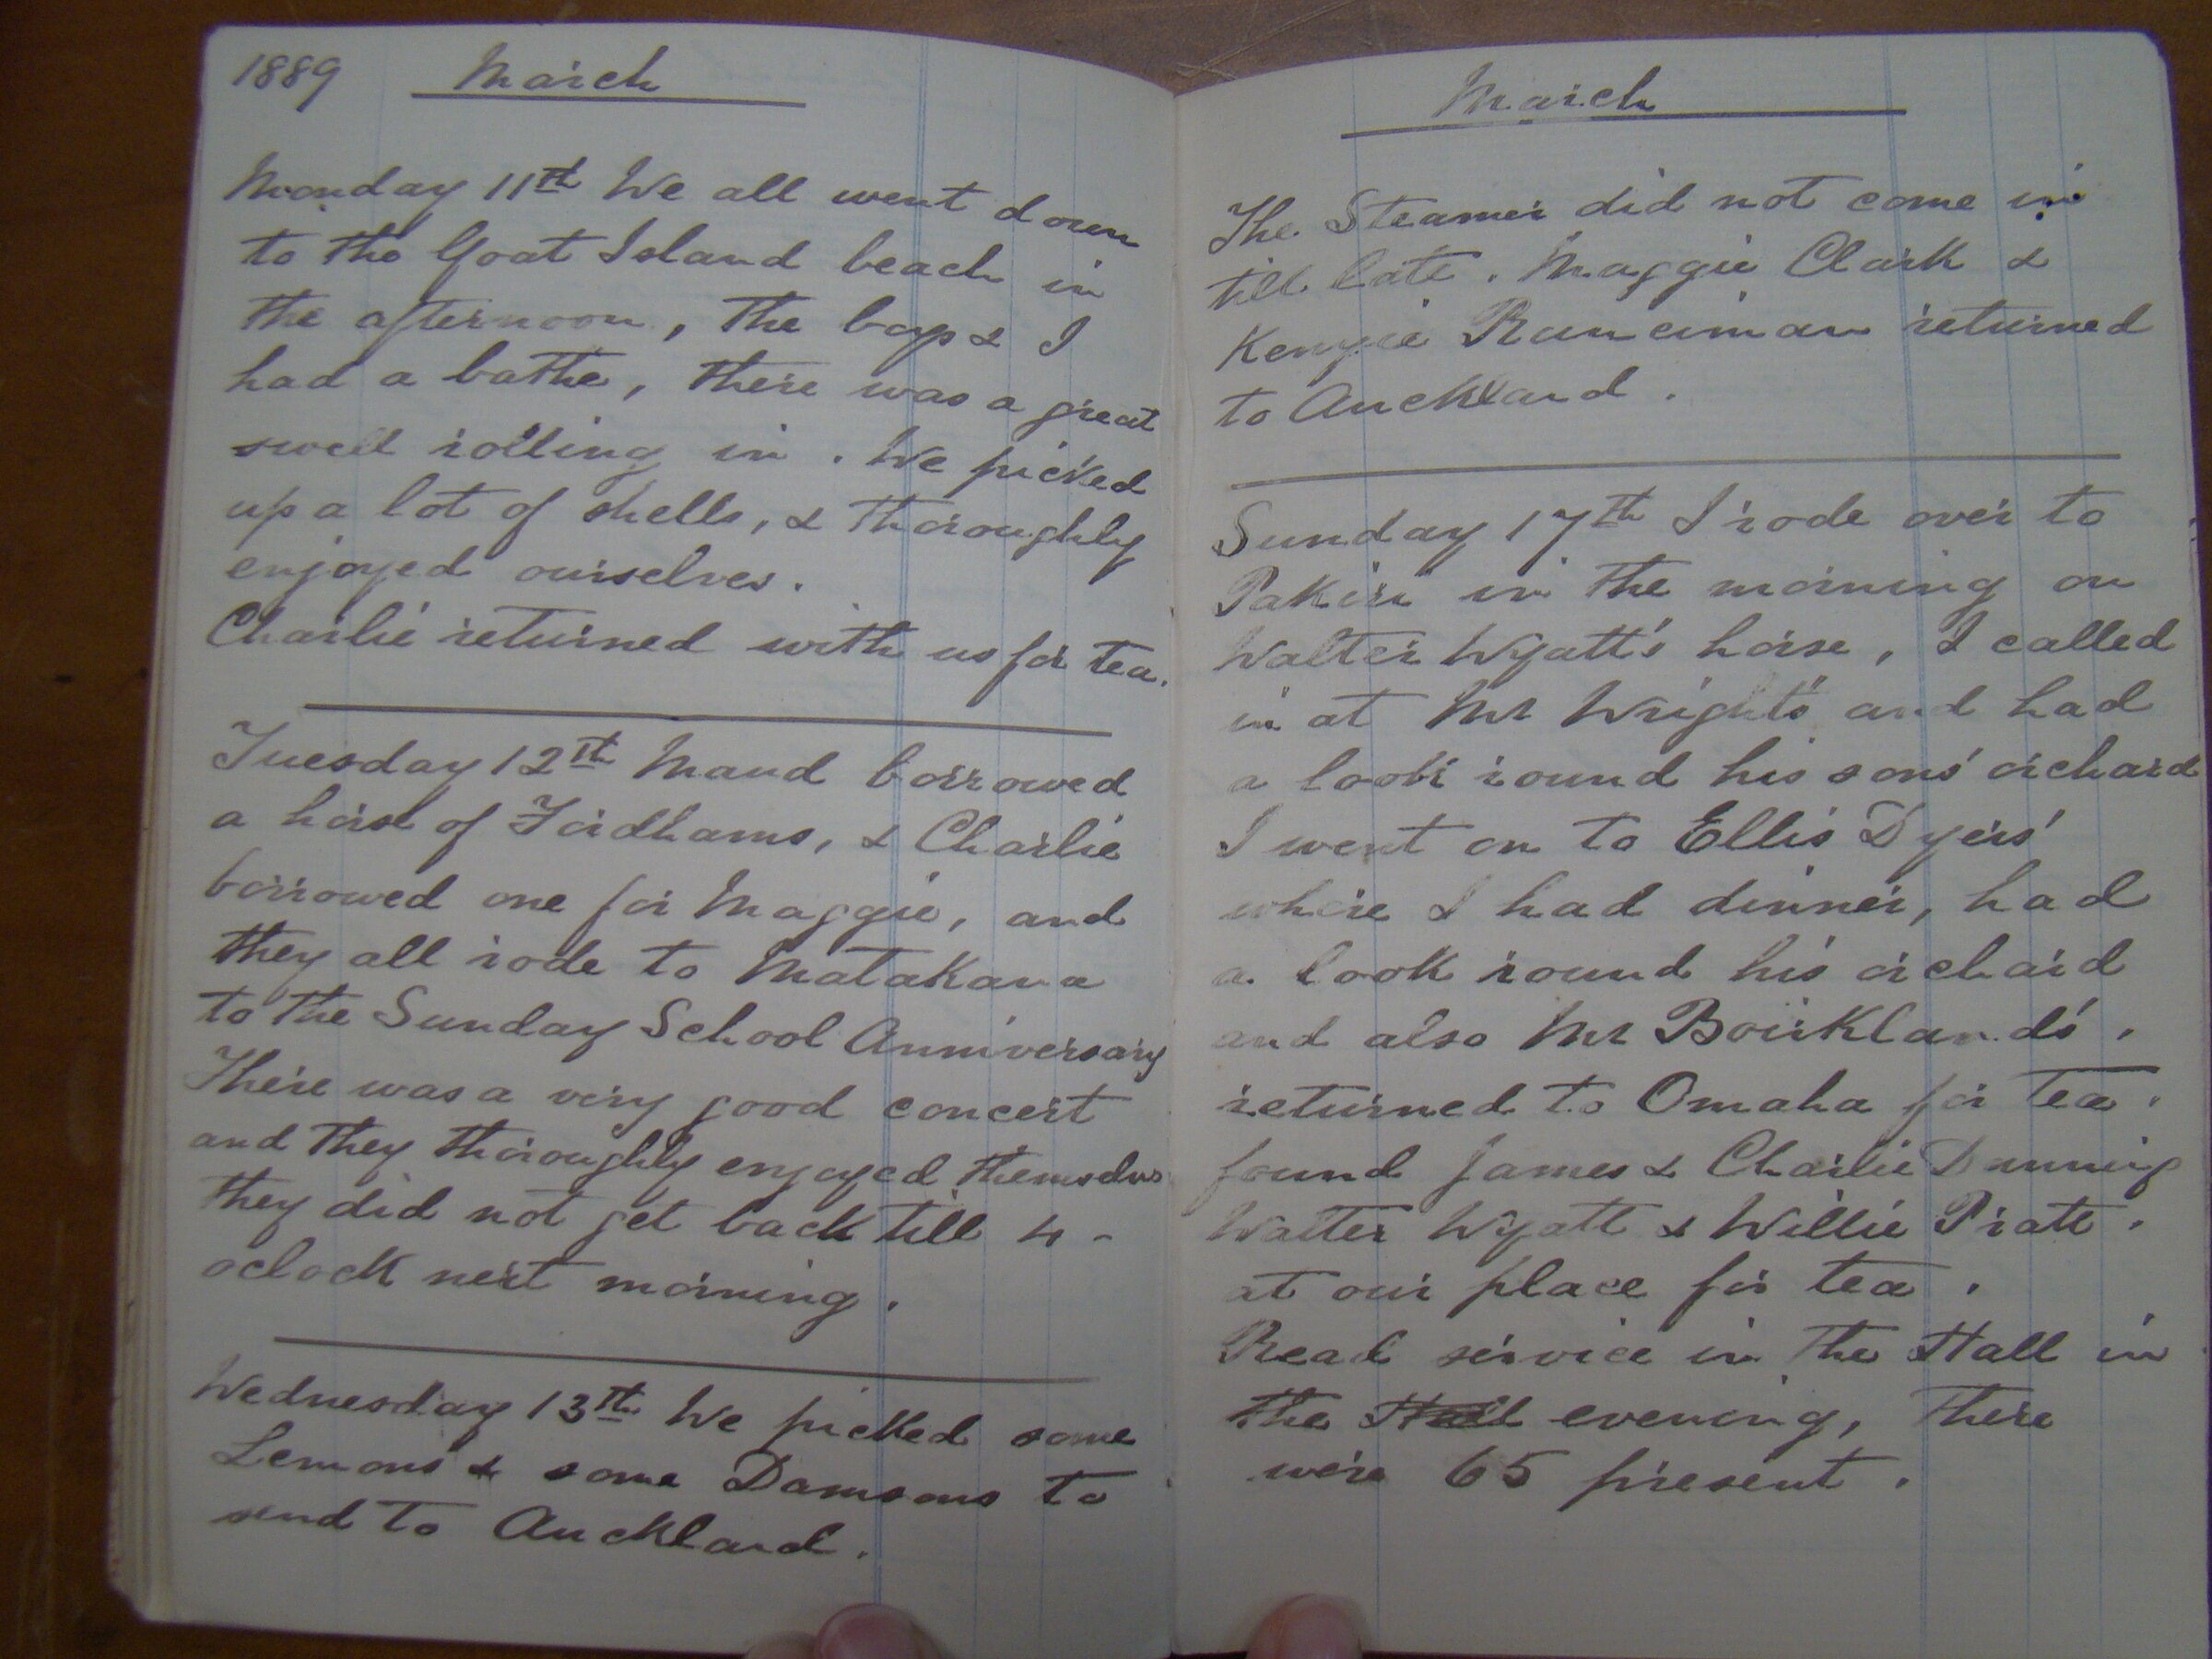 1889 March
Monday 11th We all went down
to the Goat Island beach in
the afternoon, the boys & I
had a bathe, there was a great
swell rolling in. We picked
up a lot of shells, & thoroughly
enjoyed ourselves.
Charlie returned with us for tea.
Tuesday 12th Maud borrowed
a horse of Fordhams, & Charlie
borrowed one for Maggie, and
they all rode to Matakana
to the Sunday School Anniversary
There was a very good concert
and they thoroughly enjoyed themselves
they did not get back till 4-
oclock next morning.
Wednesday 13th We picked some
Lemons & some Damsons to
send to Auckland.
March
The Steamer did not come in
till late. Maggie Clark &
Runciman returned
to Auckland.
Sunday 17th I rode over to
Pakiri in the morning on
Walter Wyatt's horse, I called
in at Mr Wright's and had
a look round his sons' orchard
I went on to Ellis Dyers'
where I had dinner, had
a look round his orchard
and also Mr Borklands'.
returned to Omaha for tea.
found James & Charlie Dunning
Walter Wyatt & Willie Pratt.
at our place for tea.
Read service in the Hall in
the Hall evening, there
were 65 present.